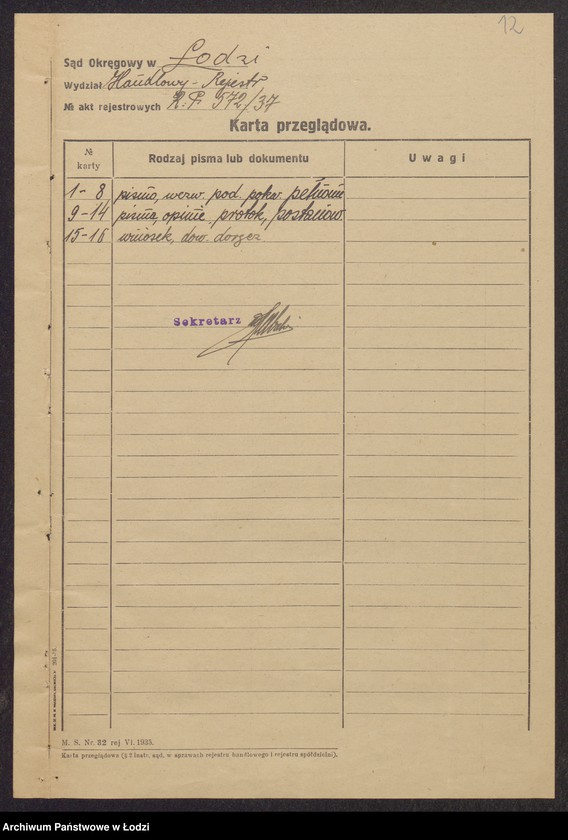 12
Sąd Okręgowy w Łodzi
Wydział Handlowy - Rejestr
№ akt rejestrowych R.P. 572/37
Karta przeglądowa.
№ karty
Rodzaj pisma lub dokumentu
Uwagi
1-8 pismo, wezw. pod. pokw. pełnom
9-14 pisma, opinie, protok, postanow.
15-16 wniosek, dow. doręcz
Sekretarz
M. S. Nr. 32 rej VI. 1935.
Karta przeglądowa (§ 2 Instr. sąd. w sprawach rejestru handlowego i rejestru spółdzielni).
Archiwum Państwowe w Łodzi